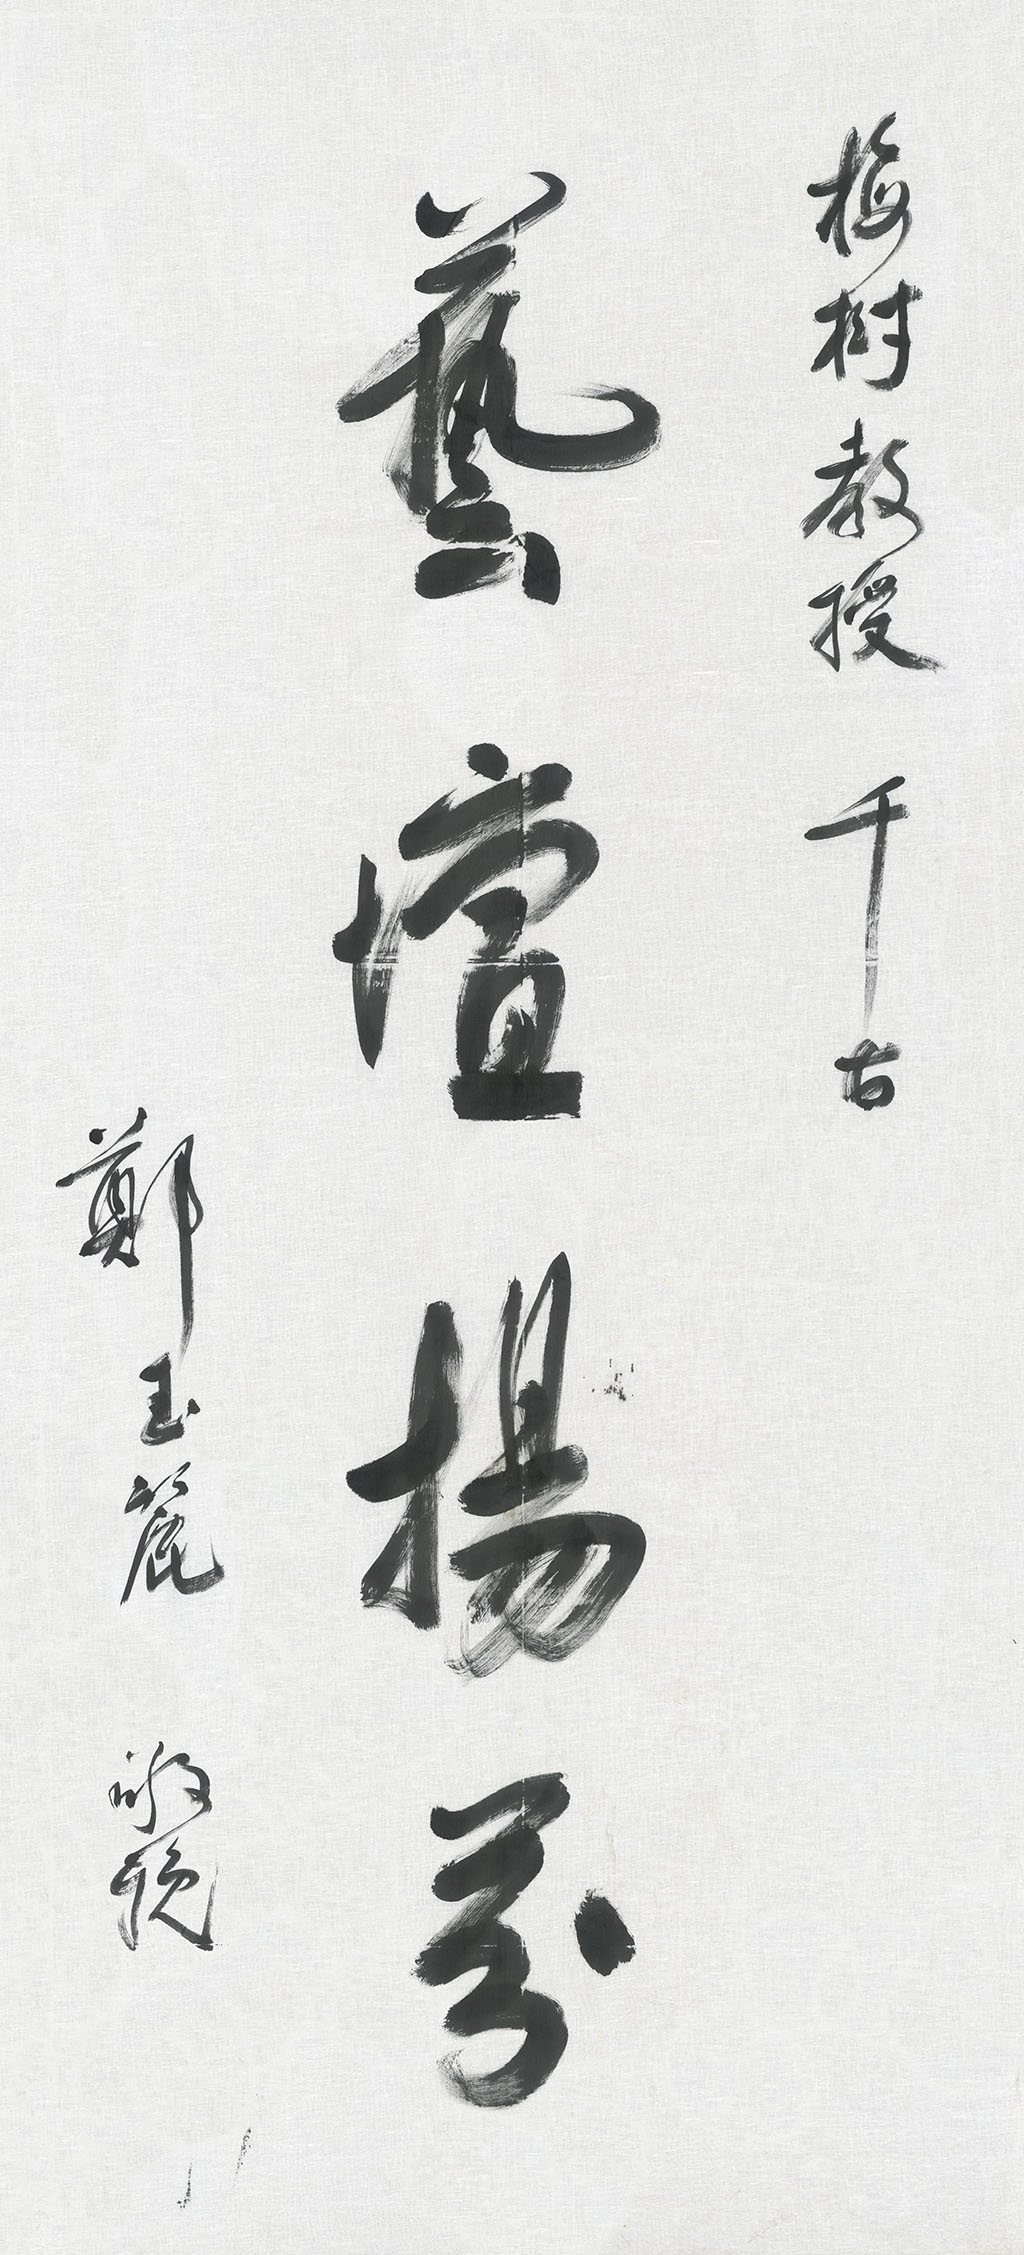 梅樹教授 千古
藝壇揚芬
鄭玉麗 敬輓